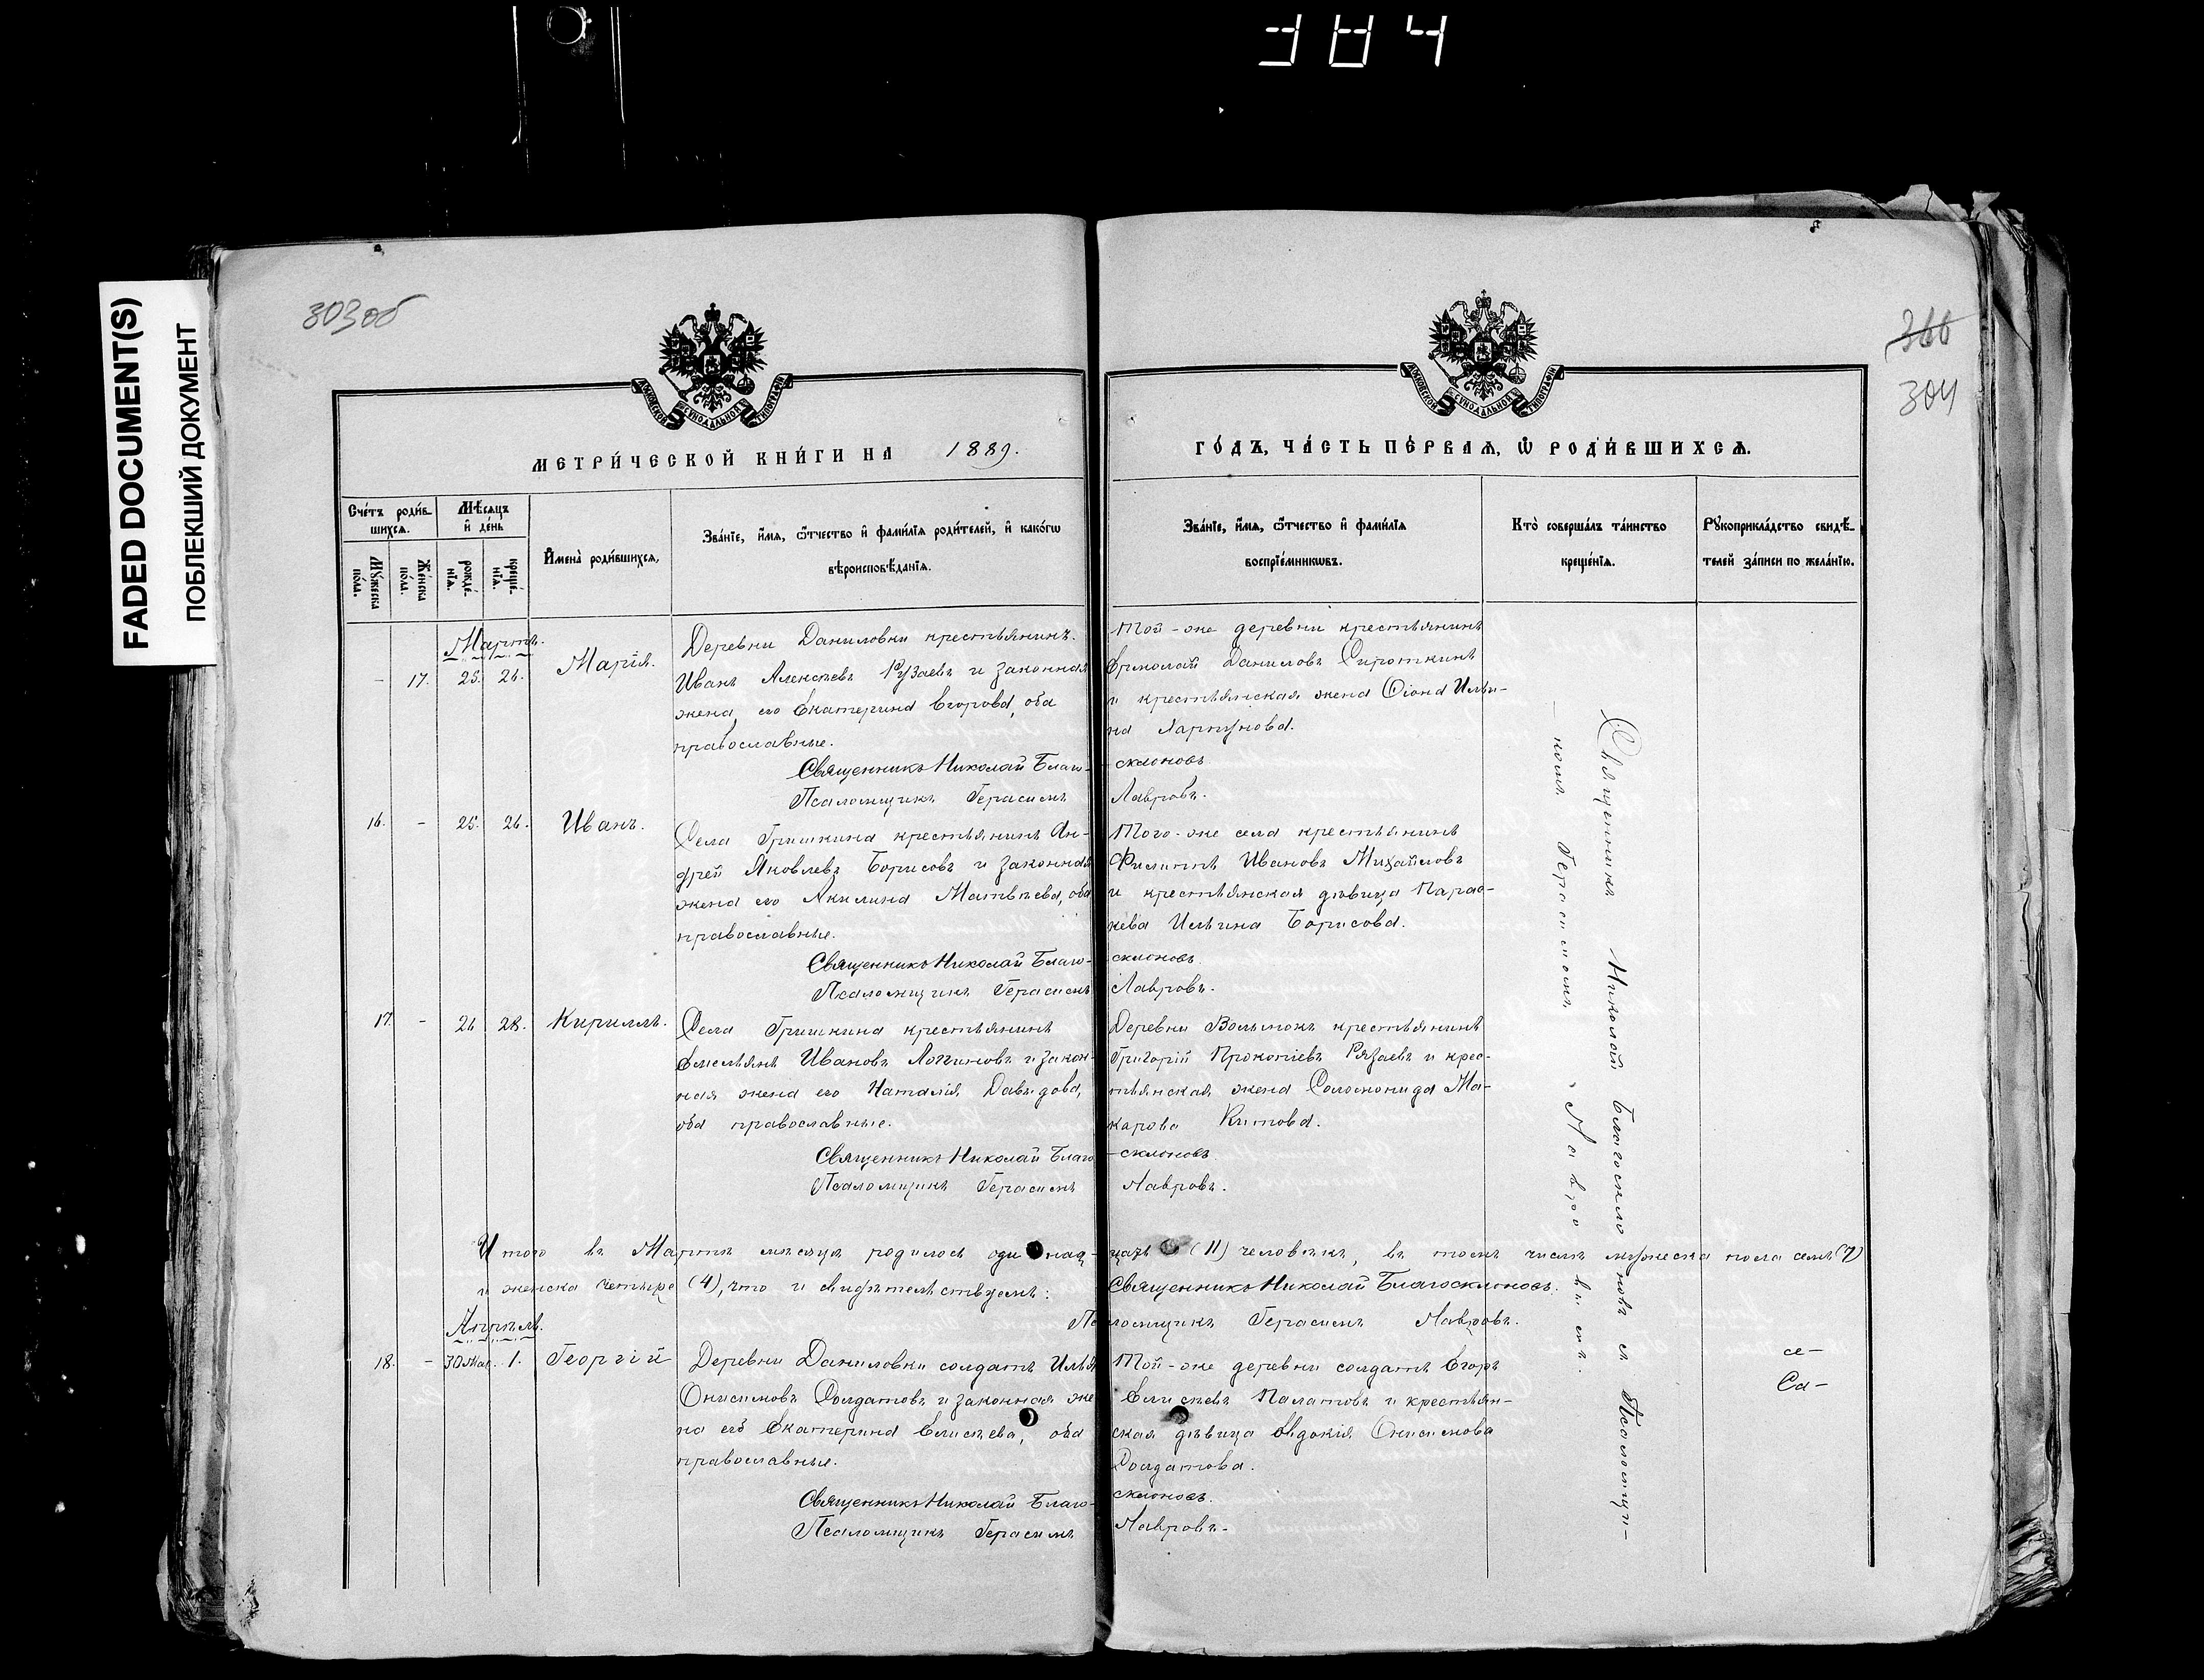 384
FADED DOCUMENT(S)
ПОБЛЕКШИЙ ДОКУМЕНТ
303 об
304
МОСКОВСКОЙ СѴНОДАЛЬНОЙ ТИПОГРАФІИ
МОСКОВСКОЙ СѴНОДАЛЬНОЙ ТИПОГРАФІИ
МЕТРИ́ЧЕСКОЙ КНИ́ГИ НА 1889.
ГО́ДЪ, ЧА́СТЬ ПЕ́РВАЯ, Ѡ҆ РОДИ́ВШИХСѦ.
Сче́тъ роди́в-
шихсѧ.
Мꙋ́жеска по́ла.
Же́нска по́ла.
Мѣ́сяцъ и҆ де́нь
рожде́-
нїѧ.
креще́-
нїѧ.
И҆мена̀ роди́вшихсѧ,
Зва́нїе, и҆́мѧ, ѻ҆́тчество и҆ фами́лїѧ роди́телей, и҆ како́гѡ
вѣроисповѣ́данїѧ.
Зва́нїе, и҆́мѧ, ѻ҆́тчество и҆ фами́лїѧ
воспрїе́мникѡвъ.
Кто̀ соверша́лъ та́инство
креще́нїѧ.
Рꙋкоприкла́дство свидѣ́-
телей за́писи по жела́нїю.
Мартъ.
- 17. 25. 26. Марія.
Деревни Даниловки крестьянинъ
Иванъ Алексѣевъ Рузаевъ и законная
жена его Екатерина Егорова, оба
православные.
Священникъ Николай Благо-
Псаломщикъ Герасимъ
Той-же деревни крестьянинъ
Николай Даниловъ Сироткинъ
и крестьянская жена Ѳіона Ильи-
на Ларіунова.
склоновъ
Лавровъ.
16. - 25. 26. Иванъ.
Села Гришкина крестьянинъ Ан-
дрей Яковлевъ Борисовъ и законная
жена его Акилина Матвѣева, оба
православные.
Священникъ Николай Благо-
Псаломщикъ Герасимъ
Того-же села крестьянинъ
Филиппъ Ивановъ Михайловъ
и крестьянская дѣвица Парас-
кева Ильина Борисова.
склоновъ.
Лавровъ.
17. - 26 28. Кириллъ.
Села Гришкина крестьянинъ
Емельянъ Ивановъ Логиновъ и закон-
ная жена его Наталія Давыдова,
оба православные.
Священникъ Николай Благо
Псаломщикъ Герасимъ
Деревни Волынокъ крестьянинъ
Григорій Прокопіевъ Рязаевъ и крес-
тьянская жена Соломонида Ма-
карова Китова.
-склоновъ.
Лавровъ.
Итого въ Мартѣ мѣсяцѣ родилось одиннад-цать (11) человѣкъ, въ томъ числѣ мужеска пола семь (7)
и женска четыре (4), что и свидѣтельствуемъ: Священникъ Николай Благосклоновъ.
Псаломщикъ Герасимъ Лавровъ.
Апрѣль.
18. - 30 Мар. 1. Георгій
Деревни Даниловки солдатъ Илья
Онисимовъ Солдатовъ и законная же
на его Екатерина Елисѣева, оба
православные.
Священникъ Николай Благо-
Псаломщикъ Герасимъ
Той-же деревни солдатъ Егоръ
Елисѣевъ Палатовъ и крестьян-
ская дѣвица Евдокія Онисимова
Солдатова.
склоновъ.
Лавровъ.
Священникъ Николай Благосклоновъ съ Псаломщи-
комъ Герасимомъ Лавровымъ.
се-
Са-